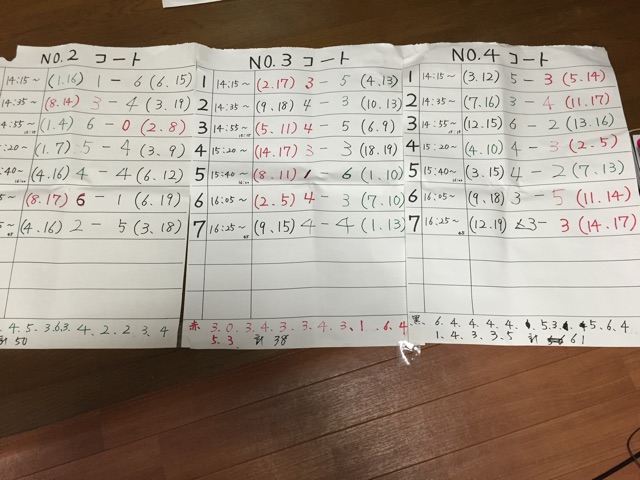 NO.2 コート
14:15~ (1.16) 1 - 6 (6.15)
14:35~ (8.14) 3 - 4 (3.19)
:55~ (1.4) 6 - 0 (2.8)
:20~ (1.7) 5 - 4 (3.9)
:40~ (4.16) 4 - 4 (6.12)
5~ (8.17) 6 - 1 (6.19)
5~ (4.16) 2 - 5 (3.18)
4.5.3.6.3.4.2.2.3.4
計 50
NO.3 コート
1 14:15~ (2.17) 3 - 5 (4.13)
2 14:35~ (9.18) 4 - 3 (10.13)
3 14:55~ (5.11) 4 - 5 (6.9)
4 15:20~ (14.17) 3 - 3 (18.19)
5 15:40~ (8.11) 1 - 6 (1.10)
6 16:05~ (2.5) 4 - 3 (7.10)
7 16:25~ (9.15) 4 - 4 (1.13)
赤 3.0.3.4.3.3.4.3.1.6.4
5.3. 計 38
NO.4 コート
1 14:15~ (3.12) 5 - 3 (5.14)
2 14:35~ (7.16) 3 - 4 (11.17)
3 14:55~ (12.15) 6 - 2 (13.16)
4 15:20~ (4.10) 4 - 3 (2.5)
5 15:40~ (3.15) 4 - 2 (7.13)
6 16:05~ (9.18) 3 - 5 (11.14)
7 16:25~ (12.19) 3 - 3 (14.17)
黒. 6.4.4.4.4. 5.3. 4 5.6.4
1.4.3.3.5 計 61